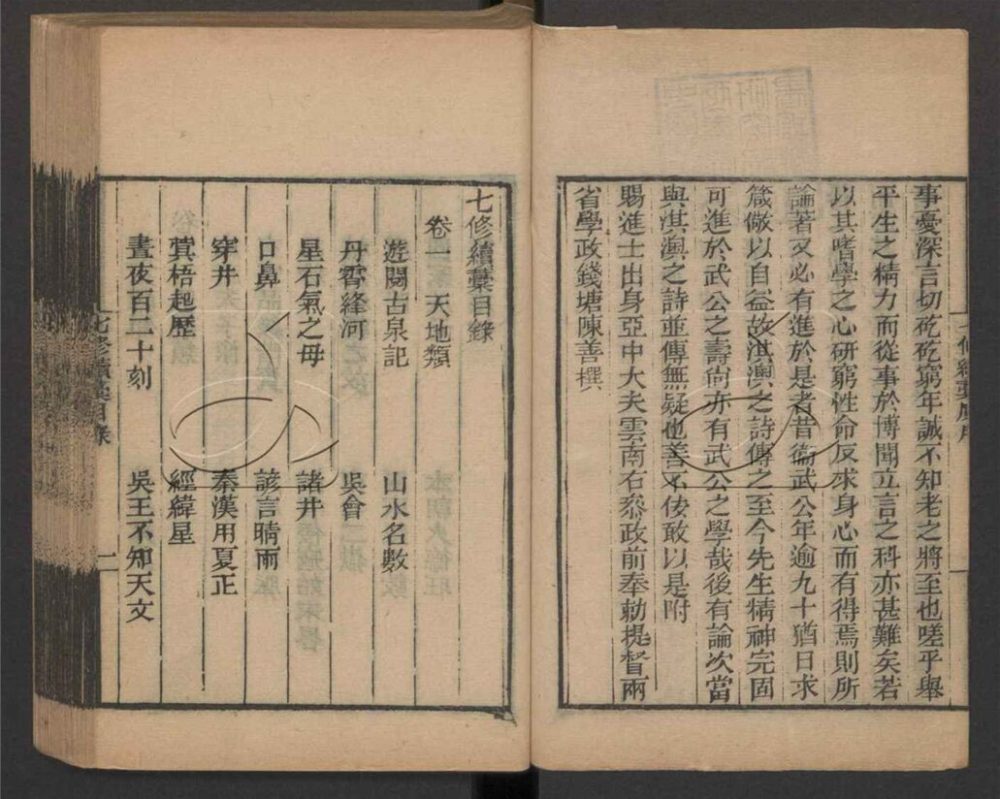 事憂深言切矻矻窮年誠不知老之將至也嗟乎舉
平生之精力而從事於博聞立言之科亦甚難矣若
以其嗜學之心研窮性命反求身心而有得焉則所
論著又必有進於是者昔衞武公年逾九十猶日求
箴儆以自益故淇澳之詩傳之至今先生精神完固
可進於武公之壽尙亦有武公之學哉後有論次當
與淇澳之詩並傳無疑也善不佞敢以是附
賜進士出身亞中大夫雲南右叅政前奉勅提督兩
省學政錢塘陳善撰
七修續藁目錄
卷一 天地類
遊閱古泉記 山水名數
丹霄絳河 吳會
星石氣之母 諸井
口鼻 諺言晴雨
穿井 秦漢用夏正
蓂梧起歷 經緯星
晝夜百二十刻 吳王不知天文
七修續藁目錄 一